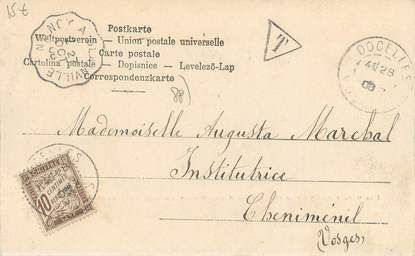 15€
Postkarte
Weltpostverein — Union postale universelle
Carte postale
Cartolina postale — Dopisnice — Levelező-Lap
Correspondenzkarte
T
DOCELLES
28
(88)
Mademoiselle Augusta Marchal
Institutrice
Cheniménil
Vosges
CHIFFRE
10
CENTIMES